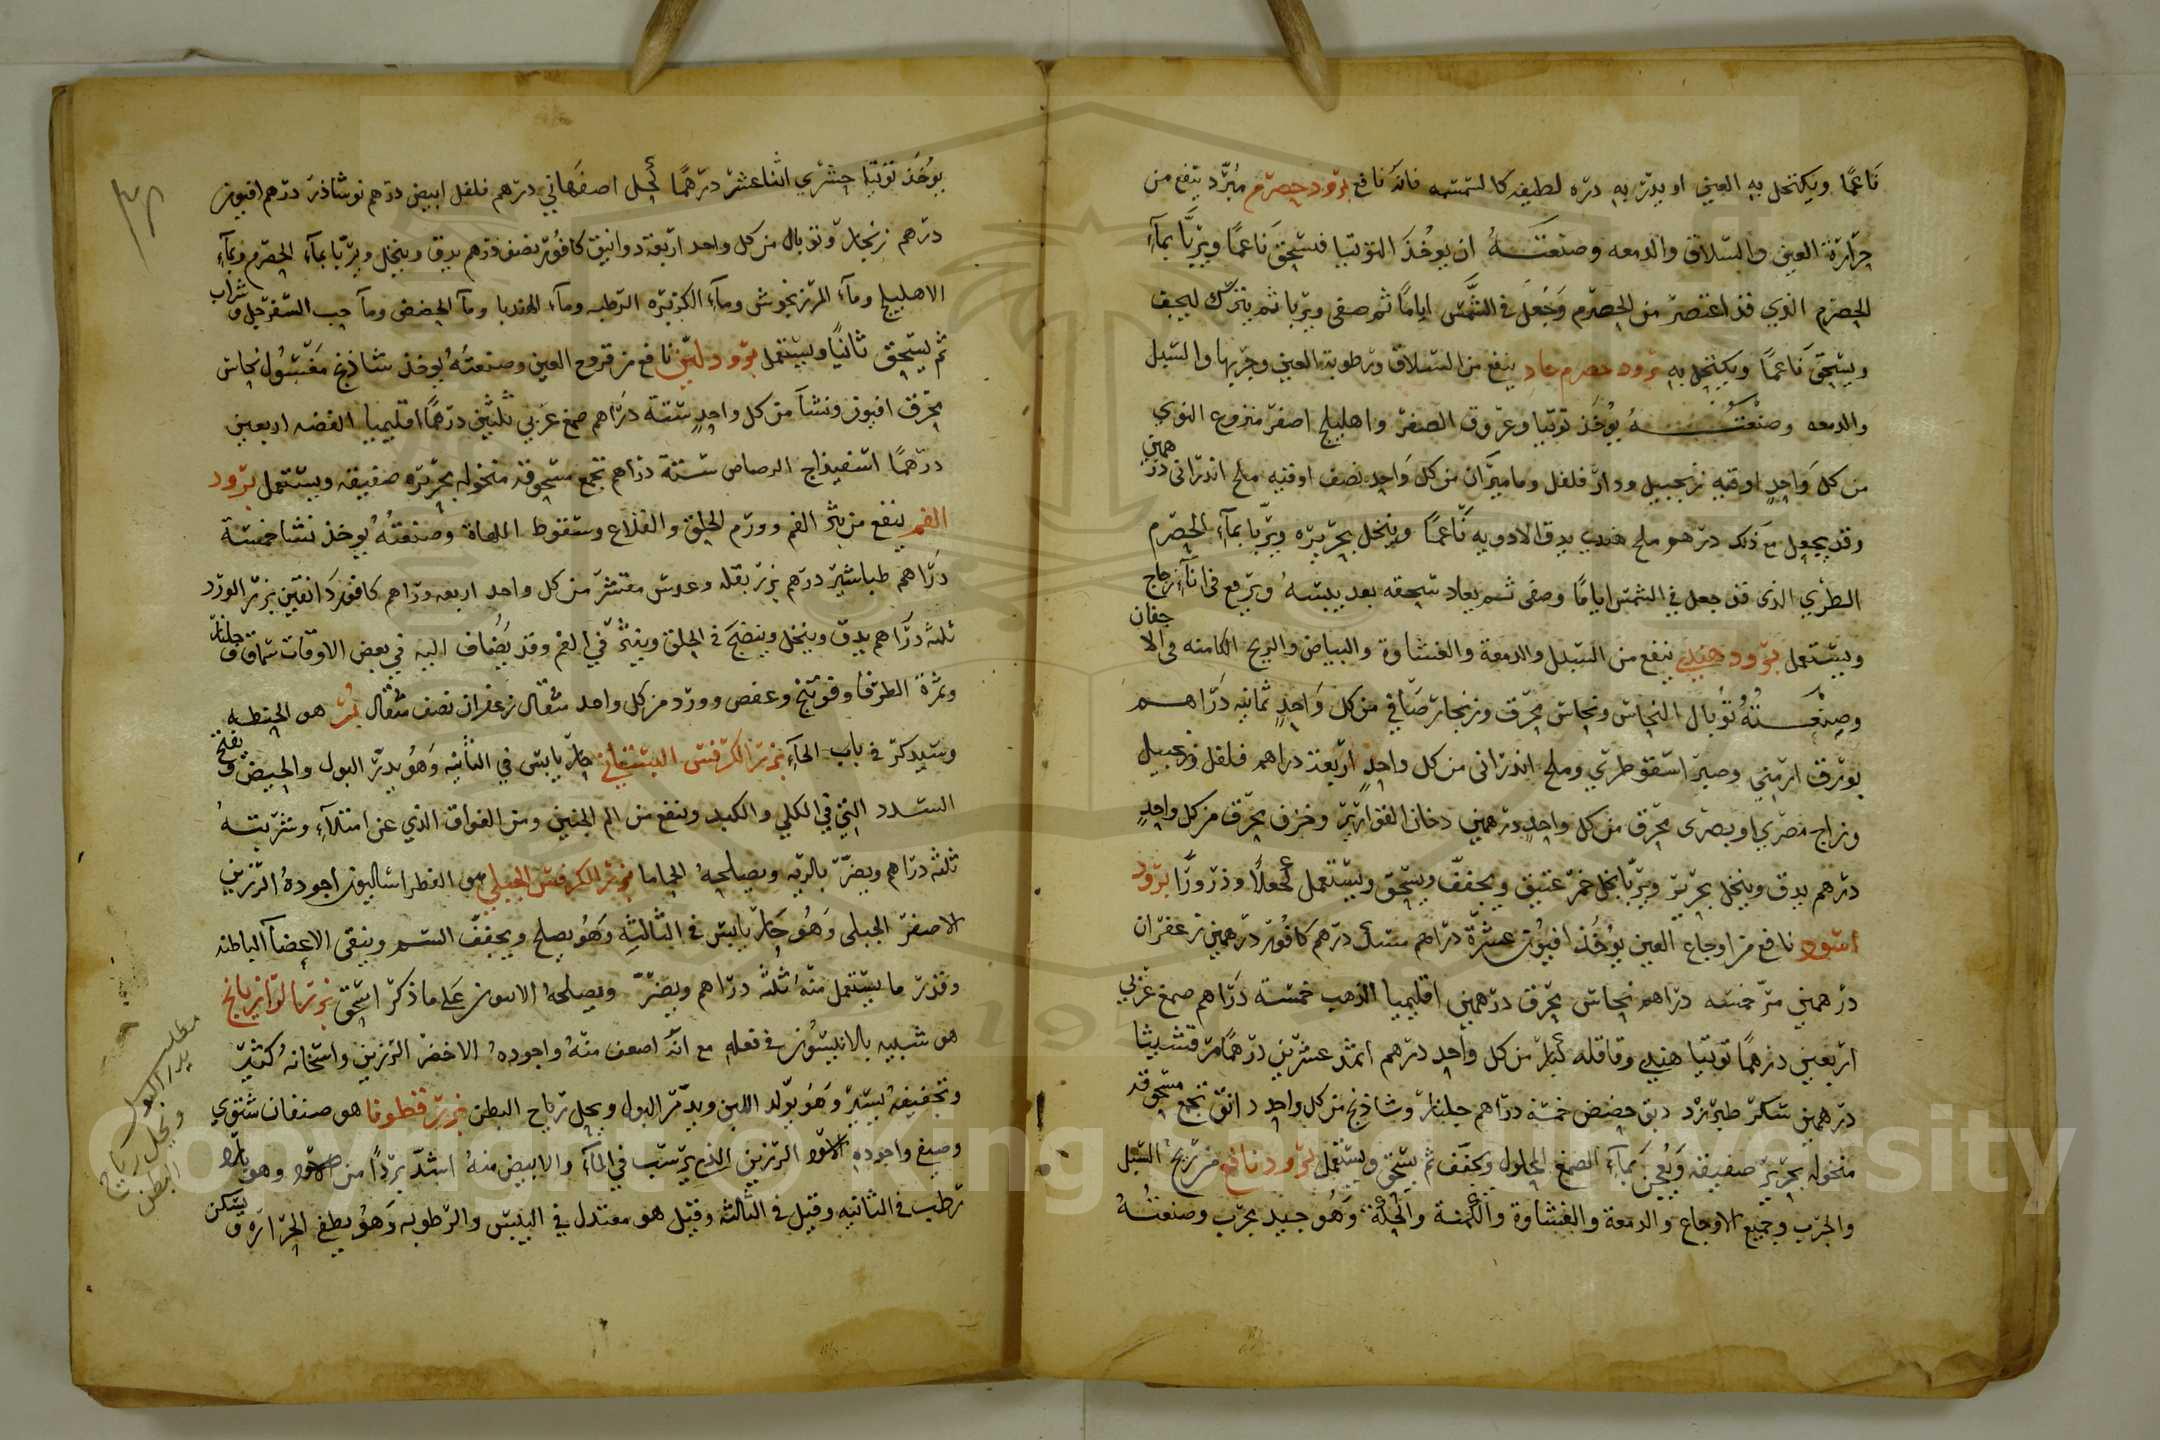 ناعمًا ويكتحل به العين او يدر به دره لطيفه كالشمسه فانه نافع برود حصرم مبرد ينفع من
حرارة العين والسلاق والدمعه وصنعته ان يوخذ التوتيا فيسحق ناعمًا ويربا بمآء
الحصرم الذي قد اعتصر من الحصرم وجعل في الشمس ايامًا ثم صفى ويربا ثم يترك ليجف
ويسحق ناعمًا ويكتحل به برود حصرم حاد ينفع من السلاق ورطوبة العين وجربها والسبل
والدمعه وصنعته يوخذ توتيا وعروق الصفر واهليلج اصفر منزوع النوي
من كل واحد اوقيه زنجبيل ودار فلفل وماميران من كل واحد نصف اوقيه ملح اندراني درهمين
وقد يجعل مع ذلك درهم ملح هندي يدق الادويه ناعمًا وينخل بحريره ويربا بمآء الحصرم
الطري الذي قد جعل في الشمس ايامًا وصفى ثم يعاد سحقه بعد يبسه ويرفع في اناء زجاج
ويستعمل برود هندي ينفع من السبل والدمعة والغشاوة والبياض والريح الكامنه في الاجفان
وصنعته توبال النحاس ونحاس محرق وزنجار صافي من كل واحد ثمانيه دراهم
بورق ارمني وصبر اسقوطري وملح اندراني من كل واحد اربعة دراهم فلفل وزنجبيل
وزاج مصري او بصرى محرق من كل واحد درهمين دخان القوارير وخزف محرق من كل واحد
درهم يدق وينخل بحرير ويربا بخل خمر عتيق ويجفف ويسحق ويستعمل كحلًا وذرورًا برود
اسود نافع من اوجاع العين يوخذ افيون عشرة دراهم سنبل درهم كافور درهمين زعفران
درهمين مر خمسه دراهم نحاس محرق درهمين اقليميا الذهب خمسة دراهم صمغ عربي
اربعين درهمًا توتيا هندي وقاقله كبار من كل واحد درهم اثمد عشرين درهمًا مرقشيثا
درهمين سكر طبرزد دبق حضض خمسة دراهم جلنار وشاذنج من كل واحد دانق تجمع مسحوقه
منخوله بحرير صفيقه ويعجن بمآء الصمغ المحلول ويجفف ثم يسحق ويستعمل برود نافع من ريح السبل
والجرب وجميع الاوجاع والدمعة والغشاوة والكمنة والحكة وهو جيد مجرب وصنعته
يوخذ توتيا حشري اثنا عشر درهمًا كحل اصفهاني درهم فلفل ابيض درهم نوشاذر درهم افيون
درهم زنجار وتوبال من كل واحد اربعة دوانيق كافور نصف درهم يدق وينخل ويربا بمآء الحصرم وبمآء
الاهليلج ومآء المرزنجوش ومآء الكزبره الرطبه ومآء الهندبا ومآ الحضض ومآ حب السفرجل وشراب
ثم يسحق ثانيًا ويستعمل برود لين نافع من قروح العين وصنعته يوخذ شاذنج مغسول نحاس
محرق افيون ونشآ من كل واحد ستة دراهم صمغ عربي ثلثين درهمًا اقليميا الفضه اربعين
درهمًا اسفيذاج الرصاص ستة دراهم تجمع مسحوقه منخوله بحريره صفيقه ويستعمل برود
الفم ينفع من بثر الفم وورم الحلق والقلاع وسقوط اللهاة وصنعته يوخذ نشا خمسة
دراهم طباشير درهم بزر بقله وعدس مقشر من كل واحد اربعه دراهم كافور دانقين بزر الورد
ثلثه دراهم يدق وينخل وينفخ في الحلق وينثر في الفم وقد يضاف اليه في بعض الاوقات سماق وجلنار
وثمرة الطرفا وفوتنج وعفص وورد من كل واحد مثقال زعفران نصف مثقال بر هو الحنطه
وسيذكر في باب الحآء بزر الكرفس البستاني حار يابس في الثانيه وهو يدر البول والحيض ويفتح
السدد التي في الكلي والكبد وينفع من الم الجنبين ومن الفواق الذي عن امتلآء وشربته
ثلثه دراهم ويضر بالريه ويصلحه الحماما بزر الكرفس الجبلي هو الفطراساليون اجوده الرزين
الاصفر الجبلى وهو حار يابس في الثالثه وهو يصلح ويجفف السم وينقى الاعضآ الباطنه
وقدر ما يستعمل منه ثلثه دراهم ويضر ويصلحه الانيسون على ما ذكر اسحق بزر الرازيانج
هو شبيه بالانيسون في فعله مع انه اضعف منه واجوده الاخضر الرزين واسخانه كثير
وتجفيفه يسير وهو يولد اللبن ويدر البول ويحل رياح البطن بزر قطونا هو صنفان شتوي
وصيفي واجوده الاسود الرزين الذي يرسب في المآء والابيض منه اشد بردًا من الاسود وهو بارد
رطب في الثانيه وقيل في الثالثه وقيل هو معتدل في اليبس والرطوبه وهو يطفي الحرارة ويسكن
مطلب
يدر البول
ويحل رياح
البطن
Copyright © King Saud University